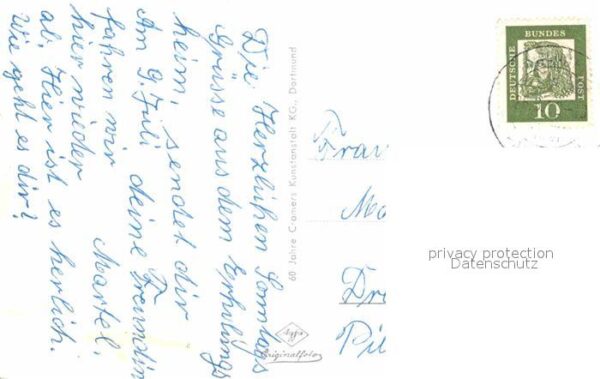 Die Herzlichen Sonntags
Grüsse aus dem Erholungs
heim, sendet dir
Am 9. Juli deine Freundin
fahren wir Martel.
hier wieder
ab, Hier ist es herlich.
Wie geht es dir?
60 Jahre Cramers Kunstanstalt KG., Dortmund
Agfa
Originalfoto
Frau
Ma
Dr
Pi
DEUTSCHE
BUNDES
POST
10
privacy protection
Datenschutz